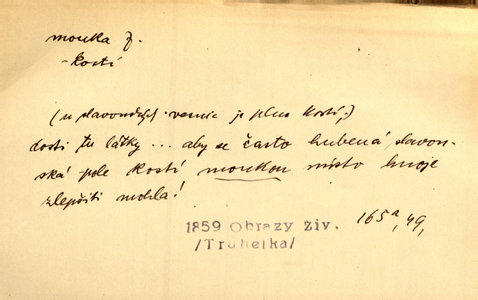 mouka ž.
-kostí
(u slavonských vesnic je plno kostí.)
dosti tu látky ... aby se často hubená slavon-
ská pole kostí moukou místo hnoje
zlepšiti mohla!
1859 Obrazy živ.
/Truhelka/
165a, 49,